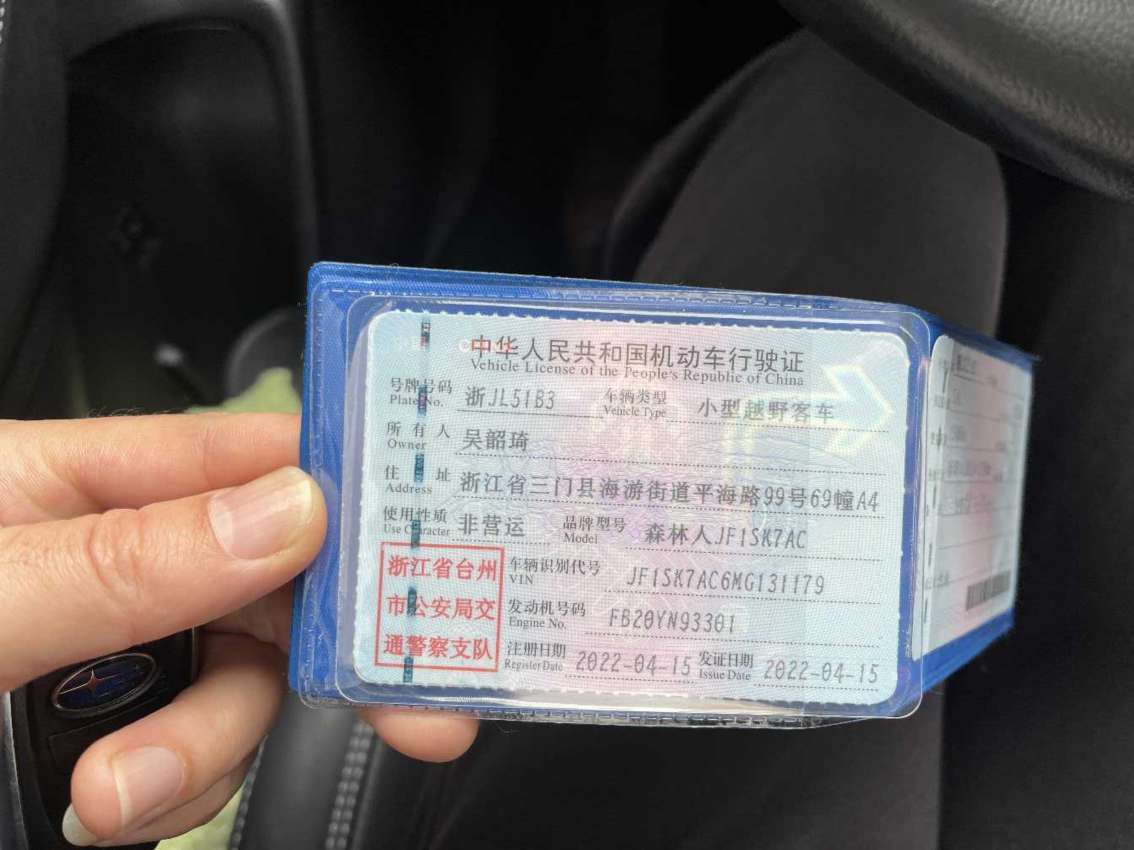 中华人民共和国机动车行驶证
Vehicle License of the People's Republic of China
号牌号码 浙JL51B3 车辆类型 小型越野客车
Plate No. Vehicle Type
所有人 吴韶琦
Owner
住址 浙江省三门县海游街道平海路99号69幢A4
Address
使用性质 非营运 品牌型号 森林人JF1SK7AC
Use Character Model
浙江省台州
市公安局交
通警察支队
车辆识别代号 JF1SK7AC6MG131179
VIN
发动机号码 FB20YN93301
Engine No.
注册日期 2022-04-15 发证日期 2022-04-15
Register Date Issue Date